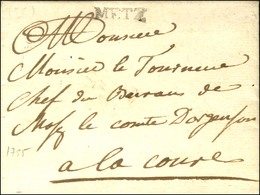 METZ
Monsieur
Monsieur le Tourneur
Chef du Bureau de
Mofr le comte Dargenson
1755
a la cour